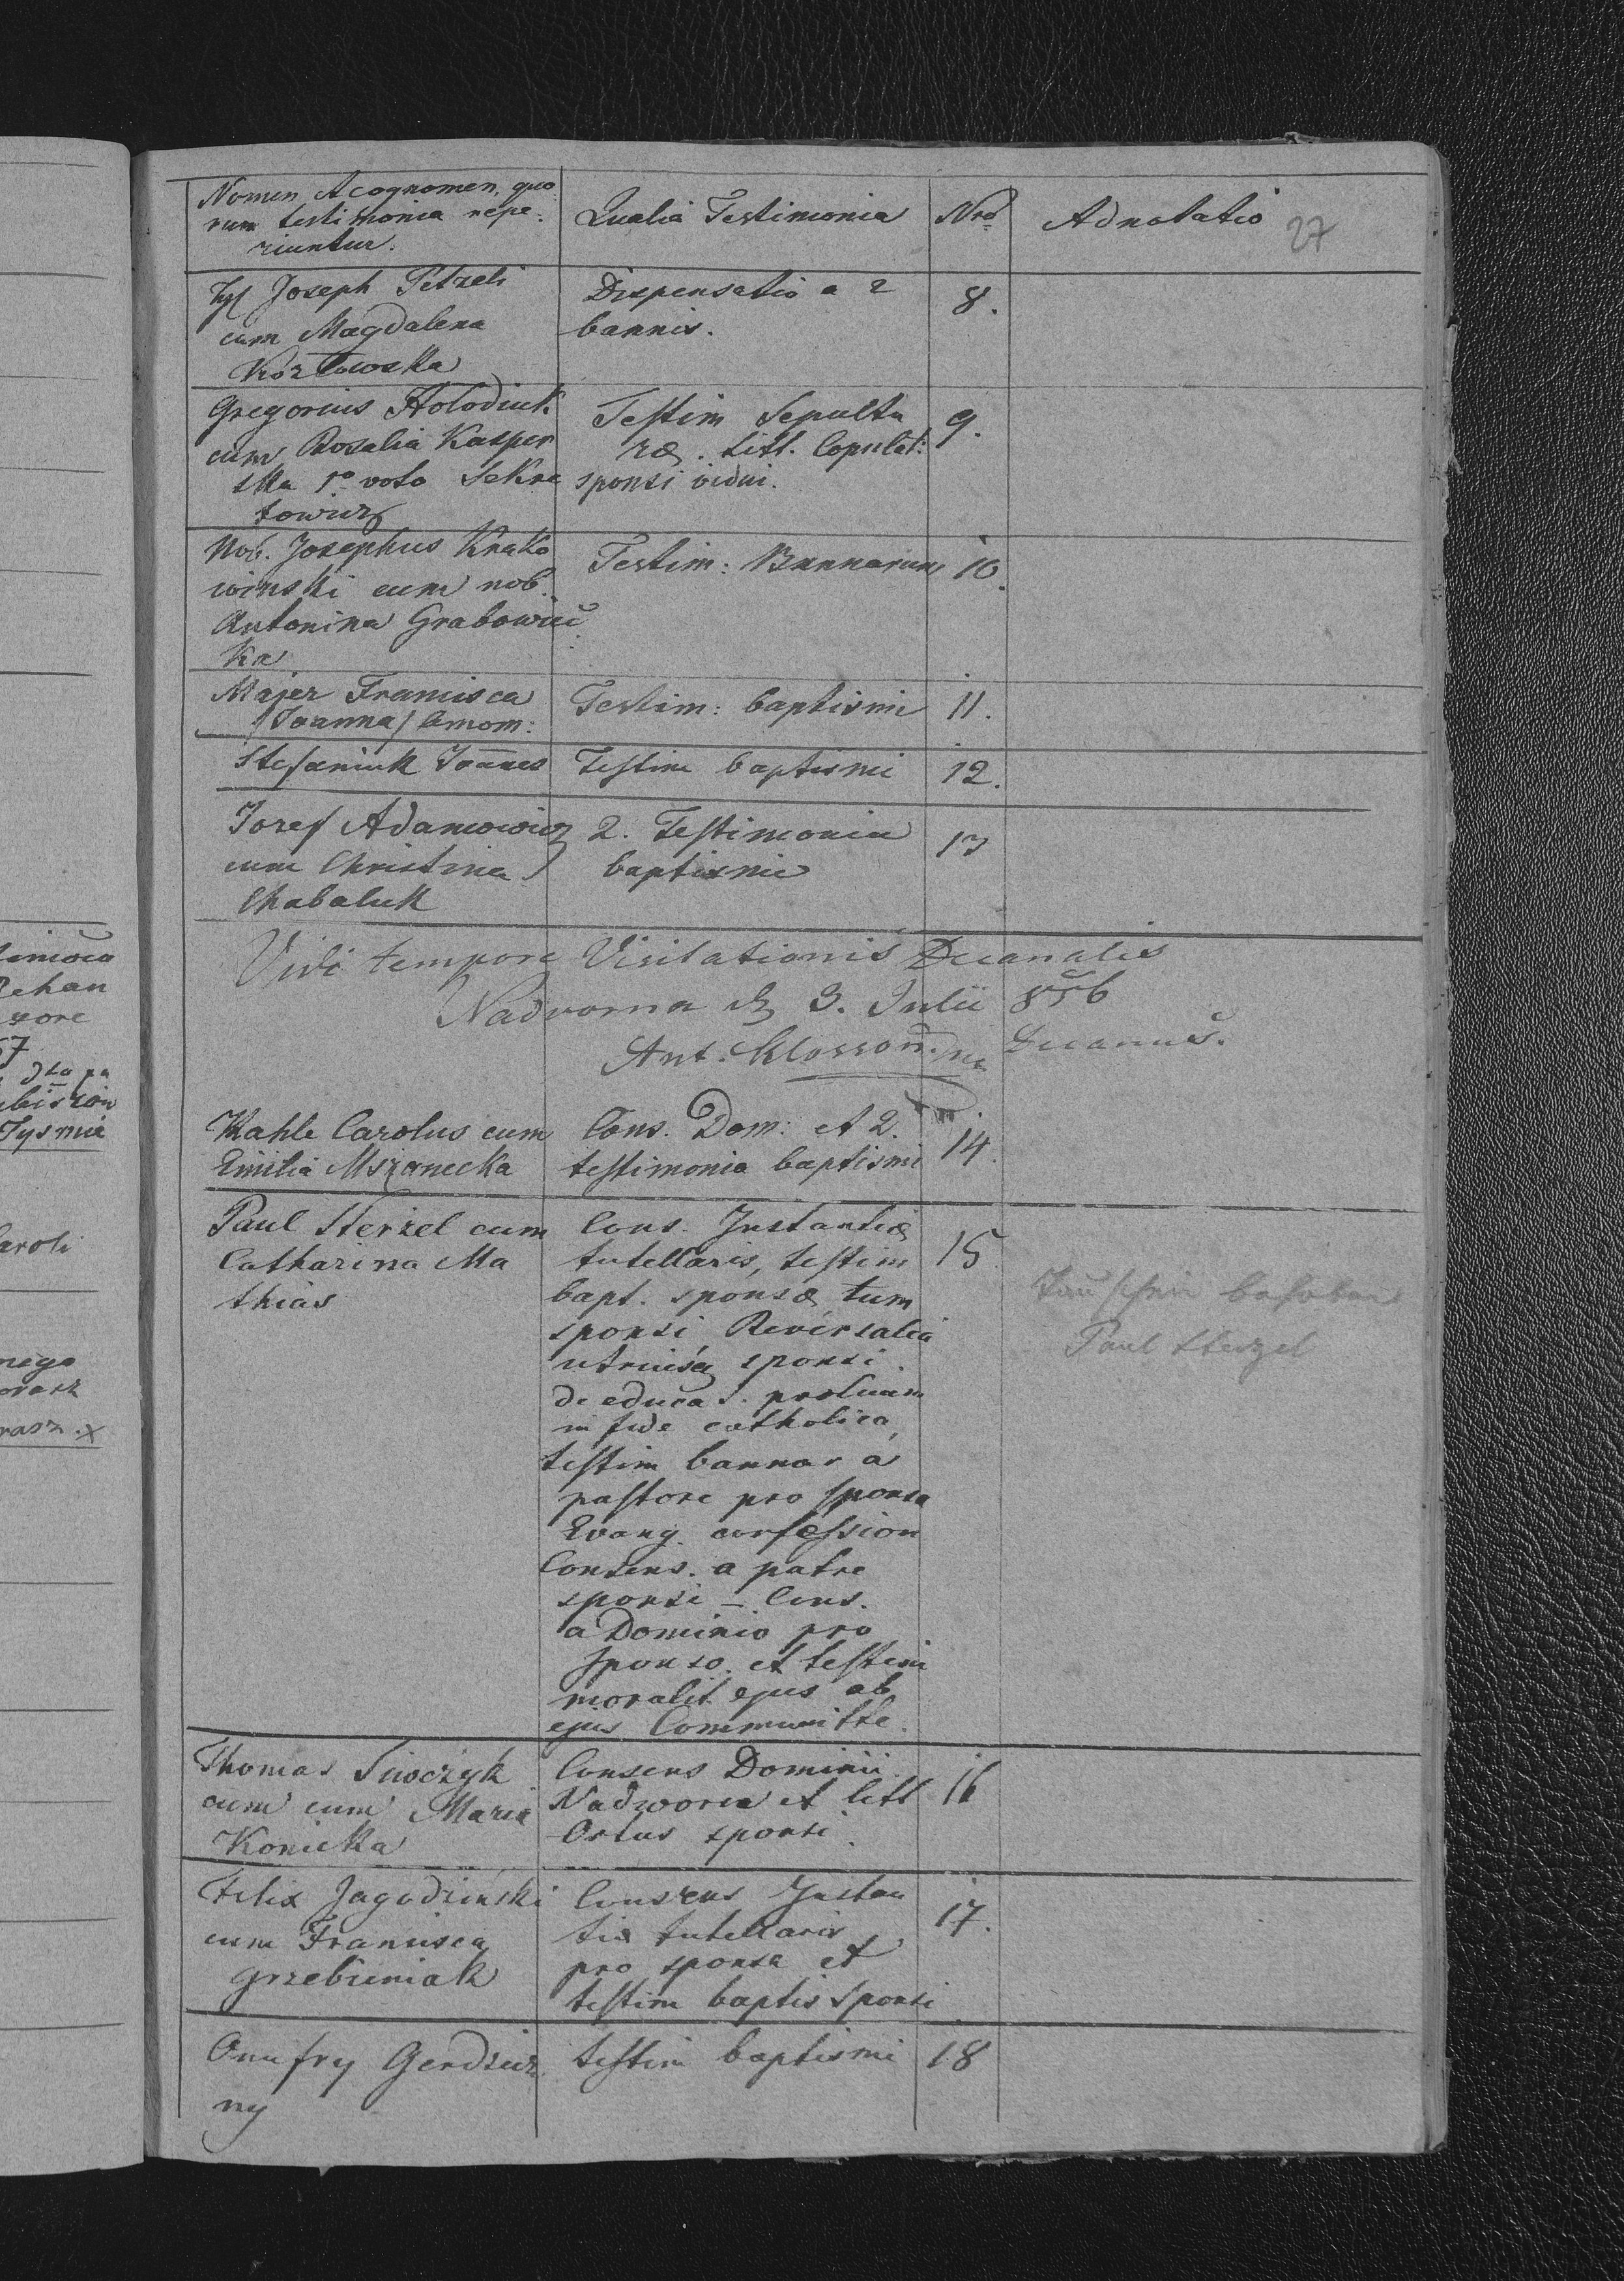 Nomen et cognomen, quo
rum testimonia repe
riuntur.
Qualia Testimonia
Nro
Adnotatio
27
Joseph Petzeli
cum Magdalena
Kozłowska
Dispensatio a 2
bannis.
8.
Gregorius Holodiuk
cum Rosalia Kasper
ska 1º voto Sekra
towicz
Testim Sepultu
ræ. Litt. Copulat:
sponsi vidui.
9.
Nob. Josephus Krako
winski cum nob.
Antonina Grabowiec
ka
Testim: Bannarum
10.
Majer Francisca
/Joanna/
Testim: baptismi
11.
Stefaniuk Joannes
Testim baptismi
12.
Josef Adamowicz
cum Christina
Chabaluk
2. Testimonia
baptismi
13
Vidi tempore Visitationis Decanalis
Nadvorna 3. Julii 856
Ant. Decanus.
Kahle Carolus cum
Emilia Mszanecka
Cons. Dom: et 2.
testimonia baptismi
14.
Paul Sterzel cum
Catharina Ma
thias
Cons. Instantiæ
tutellaris, testim
bapt. sponsæ, tum
sponsi Reversalia
sponsi
de educa
in fide catholica,
testim bannar á
pastore pro sponsa
Evang. confession
Consens. a patre
sponsi – Cons.
a Dominio pro
sponso. et testim
moralit. ejus ab
ejus Communitte.
15
Paul Sterzel
Thomas
cum cum Maria
Konicka
Consens Dominii
Nadworna et litt
Ortus sponsi
16
Felix Jagodzinski
cum Francisca
Grzebieniak
Consens Instan
tiæ tutellaris
pro sponsa et
testim baptis sponsi
17.
Onufry
ny
testim baptismi
18